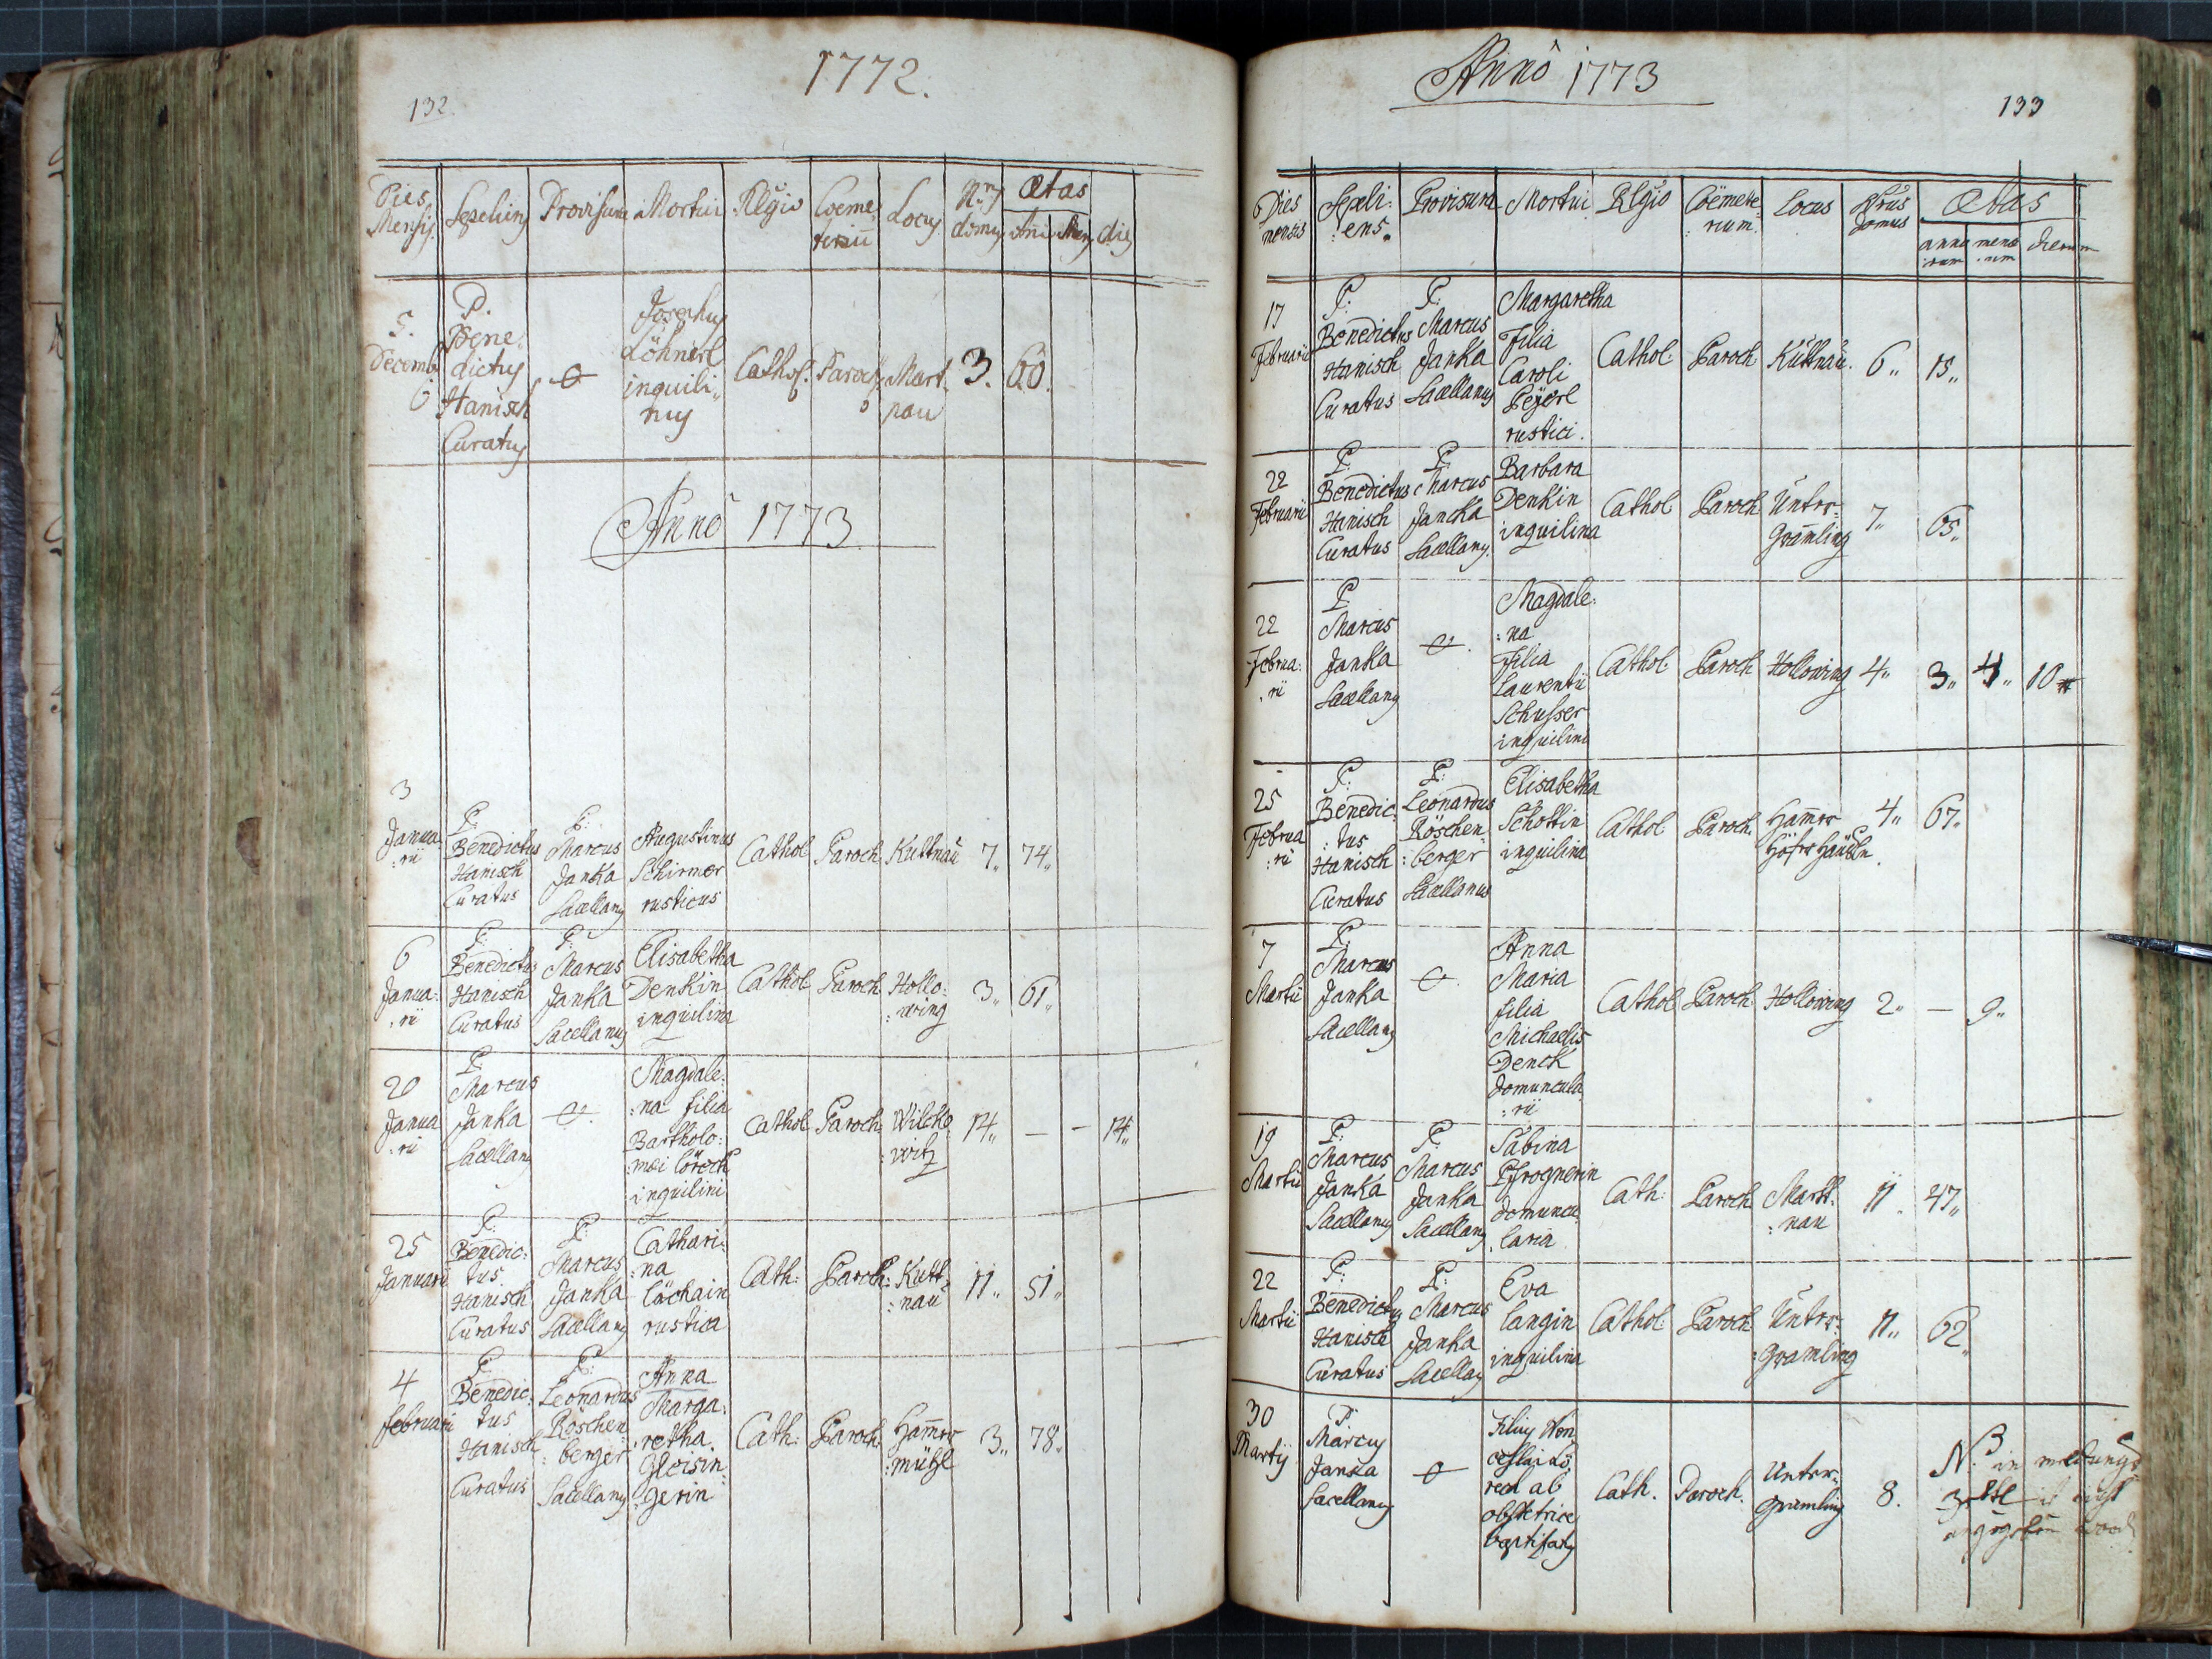 1772.
132.
Dies Mensis. Sepeliens Provisura Mortui Religio Coemeterium Locus Nrus domus Ætas
Ani Mens dies
5. Decemb P. Benedictus Hanisch Curatus Josephus Löhnerl inquilinus Cathol. Paroch. Markt nau 3. 60.
Anno 1773
3 Januarii P: Benedictus Hanisch Curatus P: Marcus Janka Sacellanus Augustinus Schirmer rusticus Cathol Paroch Kuttnau 7,, 74,,
6 Janua:rii P: Benedictus Hanisch Curatus P: Marcus Janka Sacellanus Elisabetha Denkin inquilina Cathol Paroch Hollo:wing 3,, 61,,
20 Janua:rii P: Marcus Janka Sacellanus Magdale:na filia Bartholo:mæi Löreck inquilini Cathol Paroch: Wilcko:witz 14,, — - 14,,
25 Januarii P: Benedic:tus Hanisch Curatus P: Marcus Janka Sacellanus Cathari:na rustica Cath: Paroch: Kutt:nau 11,, 51,,
4 februarii P: Benedic:tus Hanisch Curatus P: Leonardus Röschen:berger Sacellanus Anna Marga:retha Gleisin:gerin Cath: Paroch: Ham̄er:mühl 3,, 78,,
Anno 1773
133
Dies mensis Sepeli:ens Provisura Mortui Religio Coëmete:rium Locus Nrus domus Ætas
anno:rum mens:ium dierum
17 Februarii P: Benedictus Hanisch Curatus P: Marcus Janka Sacellanus Margaretha Filia Caroli Peÿerl rustici. Cathol: Paroch Kuttnau. 6,, 15,,
22 Februarii P: Benedictus Hanisch Curatus P: Marcus Jancka Sacellanus. Barbara Denkin inquilina Cathol Paroch Unter:Gramling 7,, 65,,
22 Februa:rii P: Marcus Janka Sacellanus Magdale:na Filia Laurentii Schusser inquilini Cathol Paroch Hollowing 4,, 3,, 4,, 10
25 Februa:rii P: Benedic:tus Hanisch Curatus P: Leonardus Röschen:berger Sacellanus Elisabetha Schottin inquilina Cathol Paroch: Ham̄er Höfer Häusln. 4,, 67,,
7 Martii P: Marcus Janka Sacellanus Anna Maria filia Michaelis Denck domuncula:rii Cathol Paroch Hollowing 2,, — 9,,
19 Martii P: Marcus Janka Sacellanus P: Marcus Janka Sacellanus Sabina Pfrognerin domuncu:laria Cath: Paroch Markt:nau 11,, 47,,
22 Martii P: Benedictus Hanisch Curatus P: Marcus Janka Sacellanus Eva Langin inquilina Cathol: Paroch Unter:Gramling 11,, 62,,
30 Martÿ P. Marcus Janka Sacellanus Filius Wenceslai Löreck ab obstetrice baptisatus Cath. Paroch. Unter:gramling 8. NB in